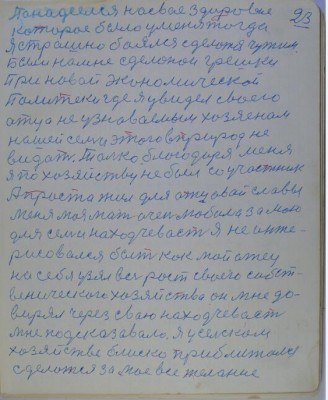 23
Понадеелся на свое здоровже
которое было у меня тогда
я страшно боялся сделоть чужим
Если на мне сделоной грешки
При новой экономической
Политеки где я увидел своего
отца не узноваемым хозяеном
нашей семи этого в природ не
видать. Толко благодаря меня
я по хозяйству не был соучастник
А проста жил для отцовай славы
меня моя мат очен любила за мою
для семи находчеваст я не инте-
рисовался быт как мой отец
на себя узял вес рост своего собст-
венического хозяйства он мне до-
вирял через сваю находчеваст
мне подсказавало, я у селском
хозяйстве близко приближался
сделотся за мое все желание